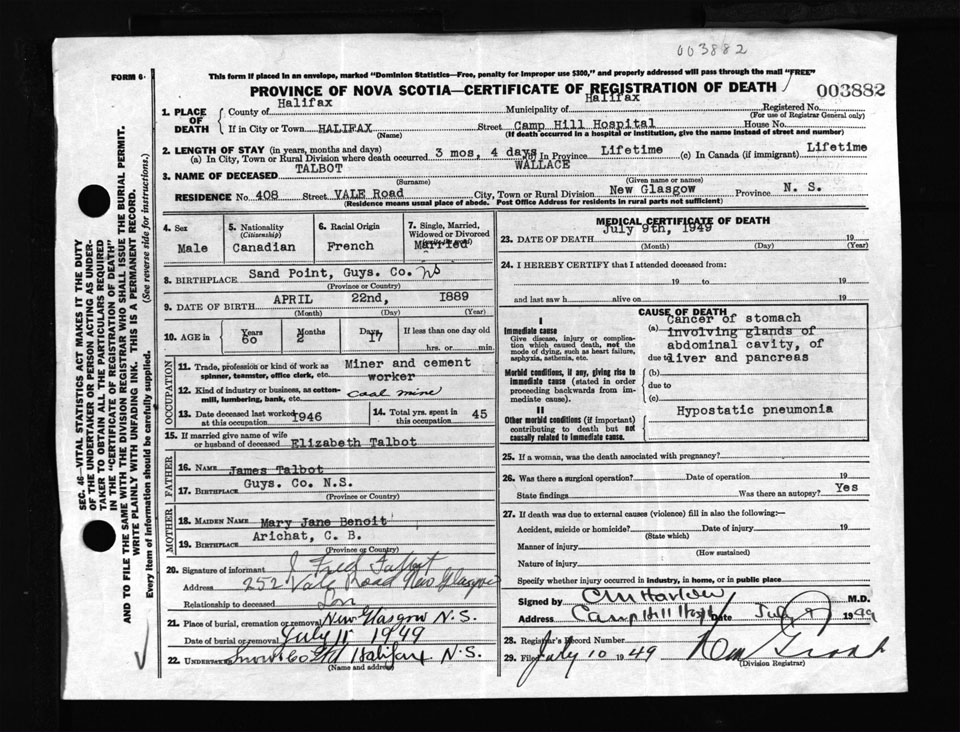 003882
FORM 6.
This form if placed in an envelope, marked "Dominion Statistics—Free, penalty for improper use $300," and properly addressed will pass through the mail "FREE"
PROVINCE OF NOVA SCOTIA—CERTIFICATE OF REGISTRATION OF DEATH
003882
1. PLACE OF DEATH
County of Halifax Municipality of Halifax Registered No.
(For use of Registrar General only)
If in City or Town HALIFAX Street Camp Hill Hospital House No.
(Name) (If death occurred in a hospital or institution, give the name instead of street and number)
2. LENGTH OF STAY (in years, months and days)
(a) In City, Town or Rural Division where death occurred 3 mos, 4 days (b) In Province Lifetime (c) In Canada (if immigrant) Lifetime
3. NAME OF DECEASED TALBOT WALLACE
(Surname) (Given name or names)
RESIDENCE No. 408 Street VALE Road City, Town or Rural Division New Glasgow Province N. S.
(Residence means usual place of abode. Post Office Address for residents in rural parts not sufficient)
4. Sex Male
5. Nationality (Citizenship) Canadian
6. Racial Origin French
7. Single, Married, Widowed or Divorced (write the word) Married
8. BIRTHPLACE Sand Point, Guys. Co. NS
(Province or Country)
9. DATE OF BIRTH APRIL 22nd, 1889
(Month) (Day) (Year)
10. AGE in Years 60 Months 2 Days 17 If less than one day old
hrs. or min.
OCCUPATION
11. Trade, profession or kind of work as spinner, teamster, office clerk, etc. Miner and cement worker
12. Kind of industry or business, as cotton-mill, lumbering, bank, etc. coal mine
13. Date deceased last worked at this occupation 1946
14. Total yrs. spent in this occupation 45
15. If married give name of wife or husband of deceased Elizabeth Talbot
FATHER
16. NAME James Talbot
17. BIRTHPLACE Guys. Co. N.S.
(Province or Country)
MOTHER
18. MAIDEN NAME Mary Jane Benoit
19. BIRTHPLACE Arichat, C. B.
(Province or Country)
20. Signature of informant J Fred Talbot
Address 252 Vale Road New Glasgow
Relationship to deceased Son
21. Place of burial, cremation or removal New Glasgow N.S.
Date of burial or removal July 11 1949
22. Undertaker Snow & Co Ltd Halifax N.S.
(Name and address)
MEDICAL CERTIFICATE OF DEATH
23. DATE OF DEATH July 9th, 1949 19
(Month) (Day) (Year)
24. I HEREBY CERTIFY that I attended deceased from:
19 to 19
and last saw h alive on 19
CAUSE OF DEATH
I
Immediate cause
Give disease, injury or complication which caused death, not the mode of dying, such as heart failure, asphyxia, asthenia, etc.
(a) Cancer of stomach
involving glands of
abdominal cavity, of
due to liver and pancreas
Morbid conditions, if any, giving rise to immediate cause (stated in order proceeding backwards from immediate cause).
(b)
due to
(c)
II
Other morbid conditions (if important) contributing to death but not causally related to immediate cause.
Hypostatic pneumonia
25. If a woman, was the death associated with pregnancy?
26. Was there a surgical operation? Date of operation 19
State findings Was there an autopsy? Yes
27. If death was due to external causes (violence) fill in also the following:—
Accident, suicide or homicide? Date of injury 19
(State which)
Manner of injury
(How sustained)
Nature of injury
Specify whether injury occurred in industry, in home, or in public place
Signed by C M Harlow M.D.
Address Camp Hill Hosp Date July 9 1949
28. Registrar's Record Number
29. Filed July 10 1949
(Division Registrar)
SEC. 46—VITAL STATISTICS ACT MAKES IT THE DUTY
OF THE UNDERTAKER OR PERSON ACTING AS UNDER-
TAKER TO OBTAIN ALL THE PARTICULARS REQUIRED
IN THE "CERTIFICATE OF REGISTRATION OF DEATH"
AND TO FILE THE SAME WITH THE DIVISION REGISTRAR WHO SHALL ISSUE THE BURIAL PERMIT.
WRITE PLAINLY WITH UNFADING INK. THIS IS A PERMANENT RECORD.
Every item of information should be carefully supplied. (See reverse side for instructions.)